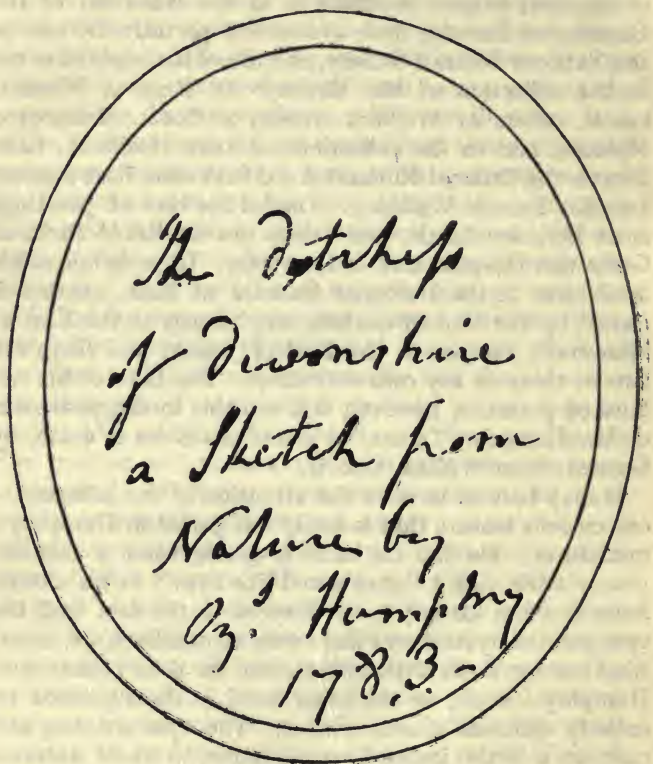 The Dutchess
of Devonshire
a Sketch from
Nature by
Ozs. Humphry
1783.-